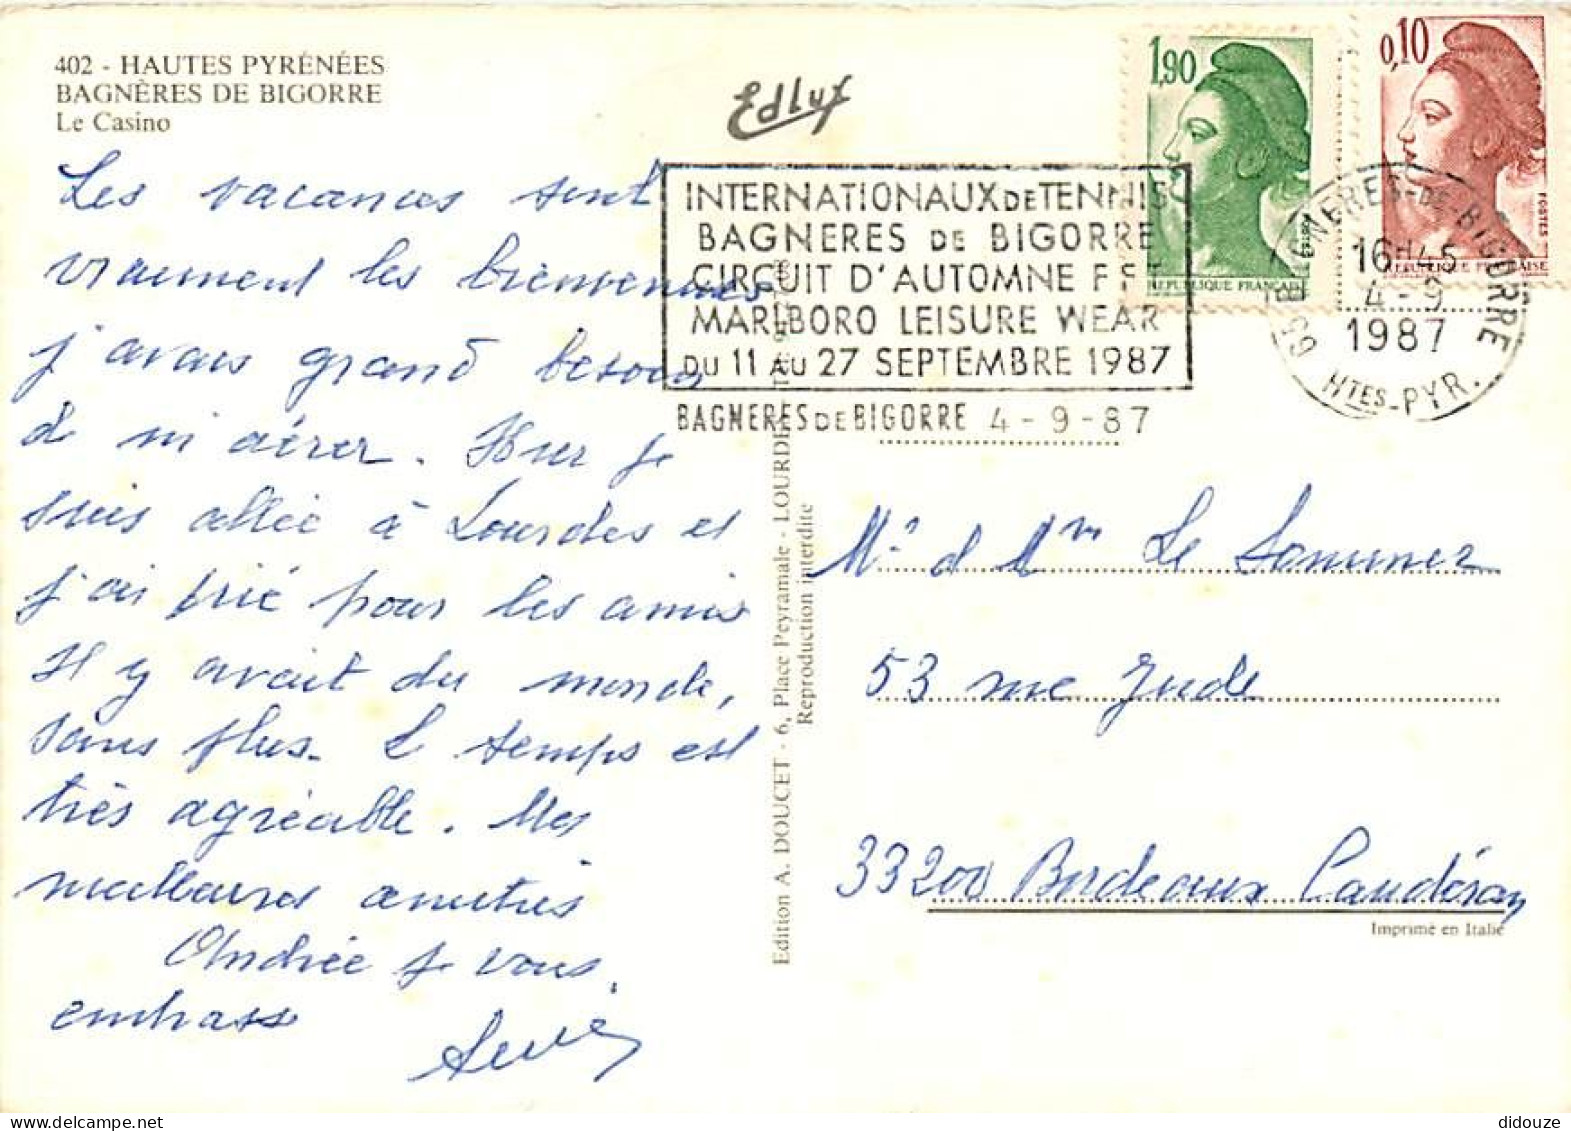 402 - HAUTES PYRÉNÉES
BAGNÈRES DE BIGORRE
Le Casino
Edlux
1,90
0,10
REPUBLIQUE FRANÇAISE
POSTES
REPUBLIQUE FRANÇAISE
INTERNATIONAUX DE TENNIS
BAGNERES DE BIGORRE
CIRCUIT D'AUTOMNE FFT
MARLBORO LEISURE WEAR
DU 11 AU 27 SEPTEMBRE 1987
BAGNERES DE BIGORRE 4-9-87
65 BAGNERES-DE-BIGORRE
16H45
4-9
1987
HTES-PYR.
Les vacances sont
vraiment les bienvenues
j'avais grand besoin
de m'aérer. Hier je
suis allée à Lourdes et
j'ai prié pour les amis
Il y avait du monde,
sans plus. Le temps est
très agréable. Mes
meilleures amitiés
Andrée je vous
embrasse
Edition A. DOUCET - 6, Place Peyramale - LOURDES
Reproduction interdite
Mr et Mme Le Sommer
53 rue Jude
33200 Bordeaux Caudéran
Imprimé en Italie
didouze